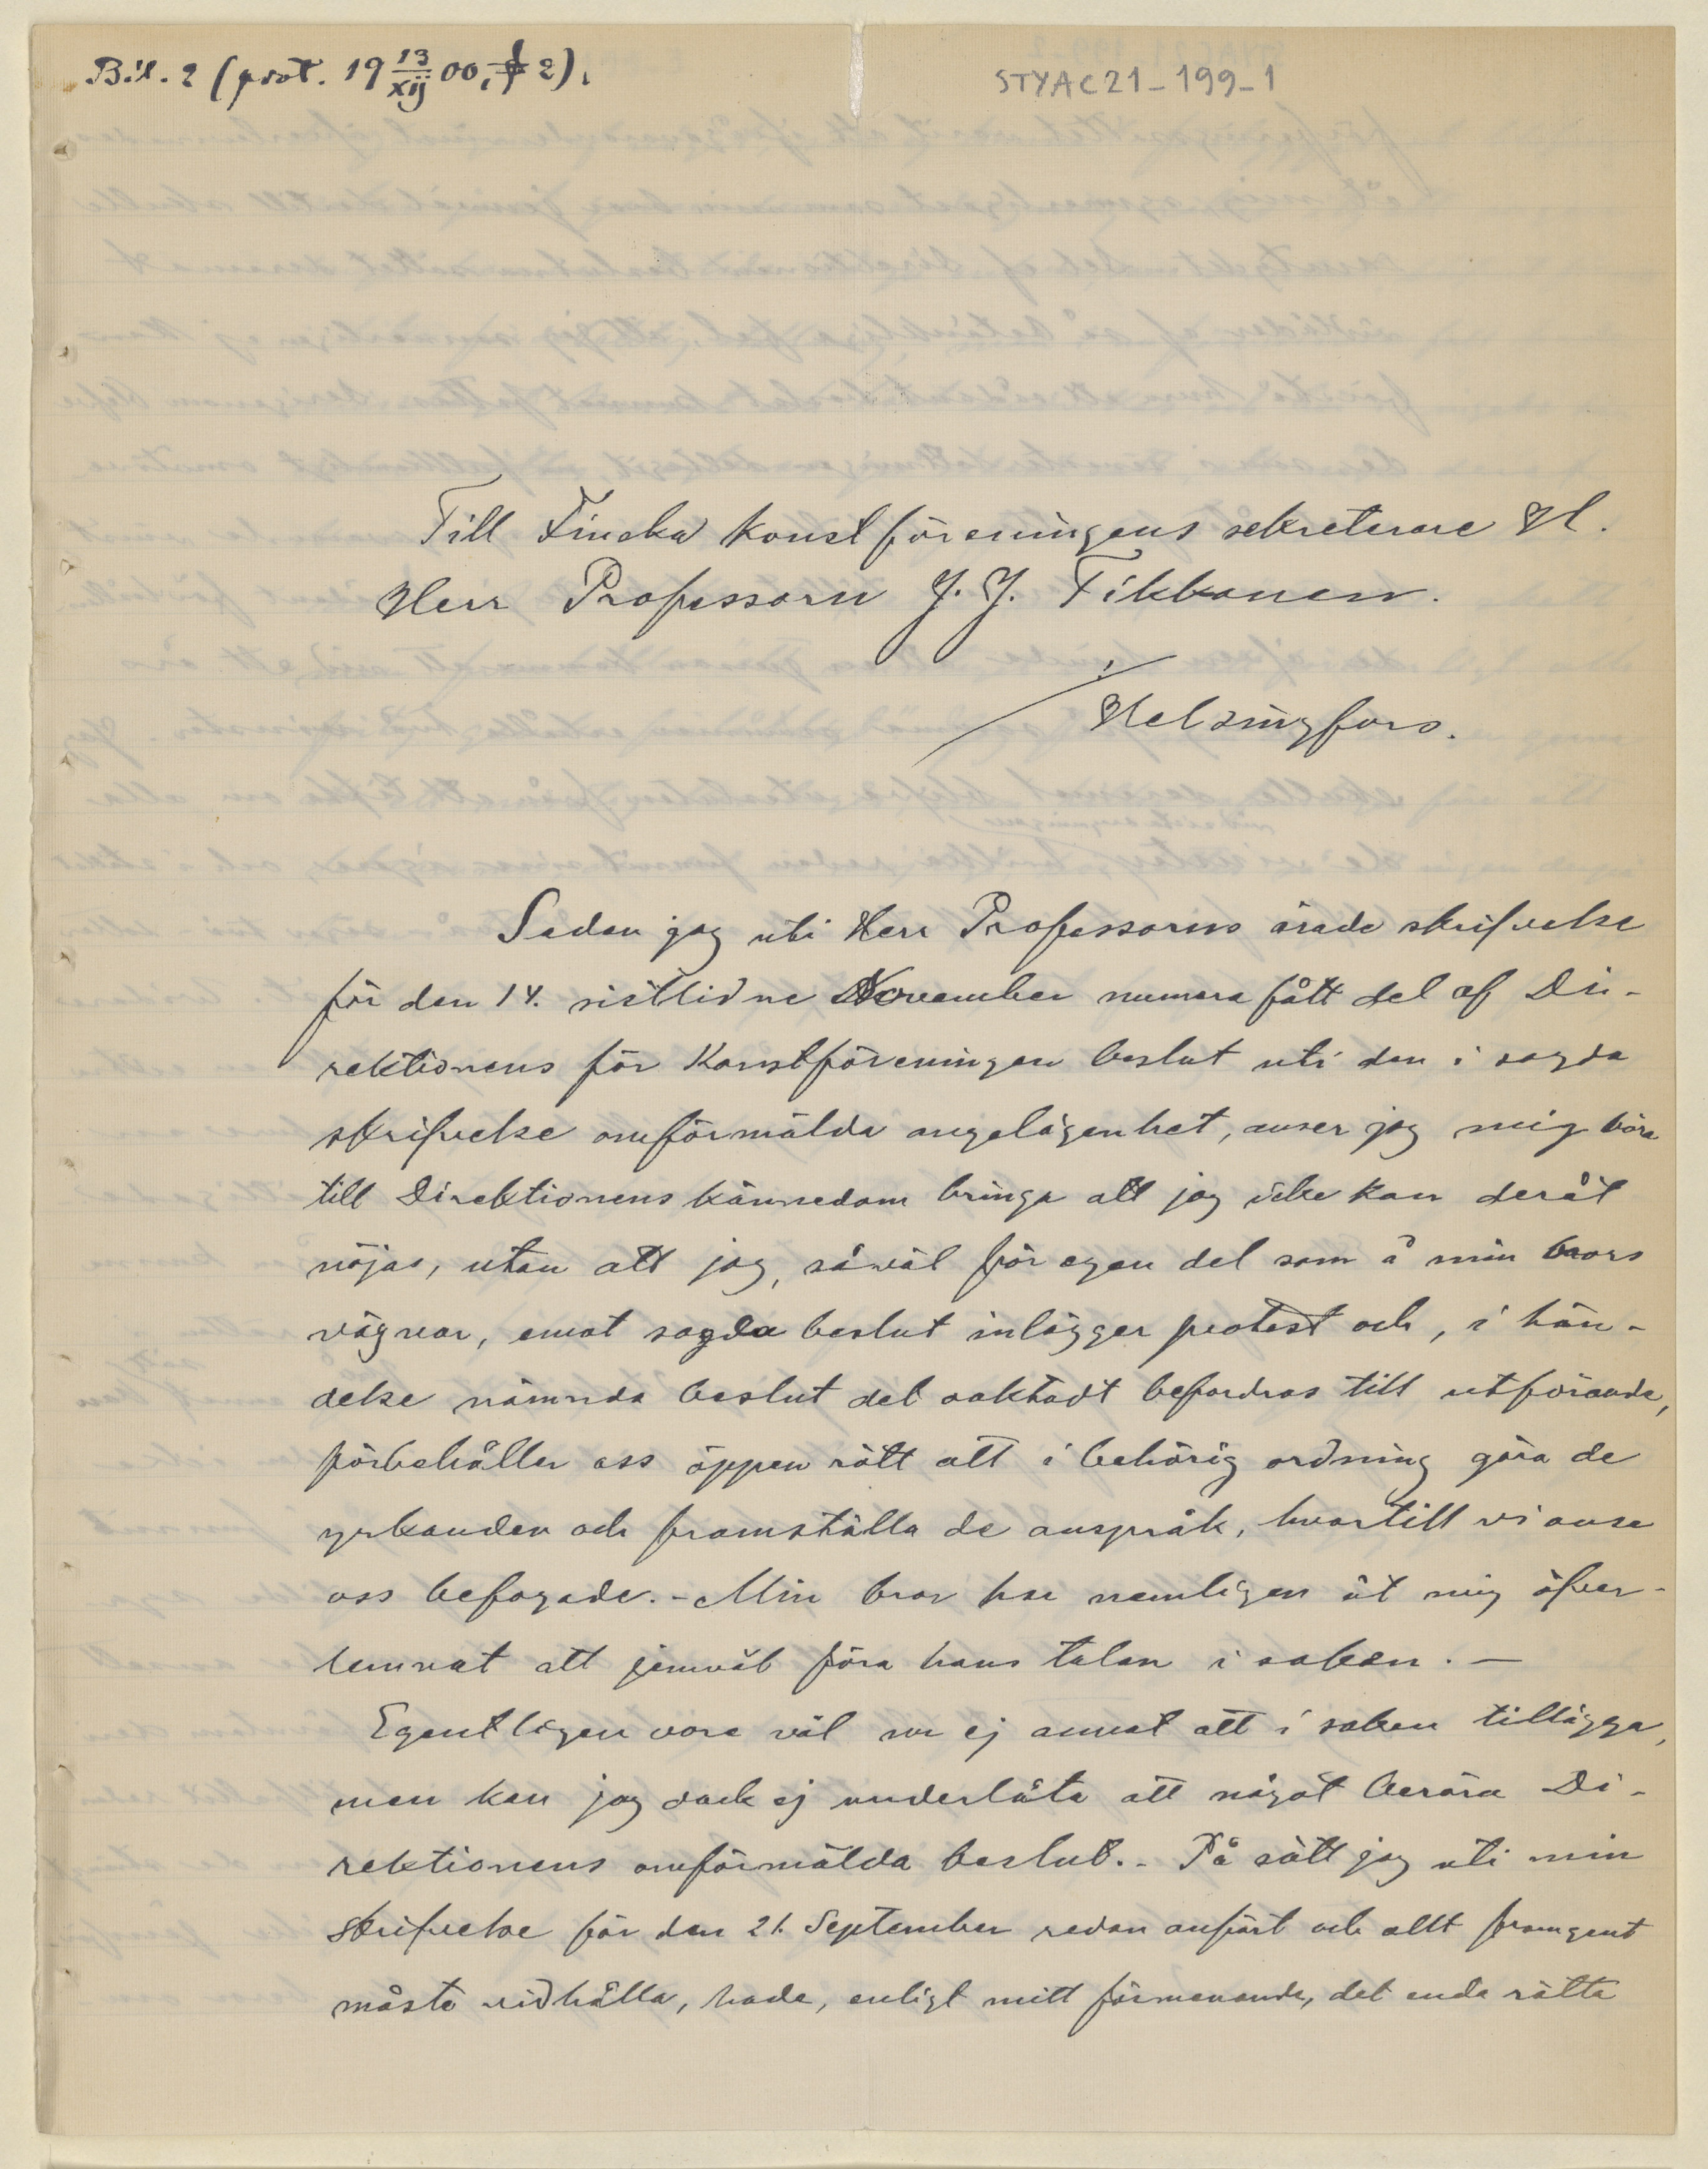 Bil. 2 (prot. 19 13/xij 00, § 2).
STYAC21-199-1
Till Finska Konstföreningens sekreterare H.
Herr Professorn J. J. Tikkanen.
Helsingfors.
Sedan jag uti Herr Professorns ärade skrifvelse
för den 14. sistlidne November numera fått del af Di-
rektionens för Konstföreningen beslut uti den i sagda
skrifvelse omförmälda angelägenhet, anser jag mig böra
till Direktionens kännedom bringa att jag icke kan deråt
nöjas, utan att jag, såväl för egen del som å min brors
vägnar, emot sagda beslut inlägger protest och, i hän-
delse nämnda beslut det oaktadt befordras till utförande,
förbehåller oss öppen rätt att i behörig ordning göra de
yrkanden och framställa de anspråk, hvartill vi anse
oss befogade. - Min bror har nemligen åt mig öfver-
lemnat att jemväl föra hans talan i saken. —
Egentligen vore väl nu ej annat att i saken tillägga,
men kan jag dock ej underlåta att något beröra Di-
rektionens omförmälda beslut. - På sätt jag uti min
skrifvelse för den 21. September redan anfört och allt framgent
måste vidhålla, hade, enligt mitt förmenande, det enda rätta